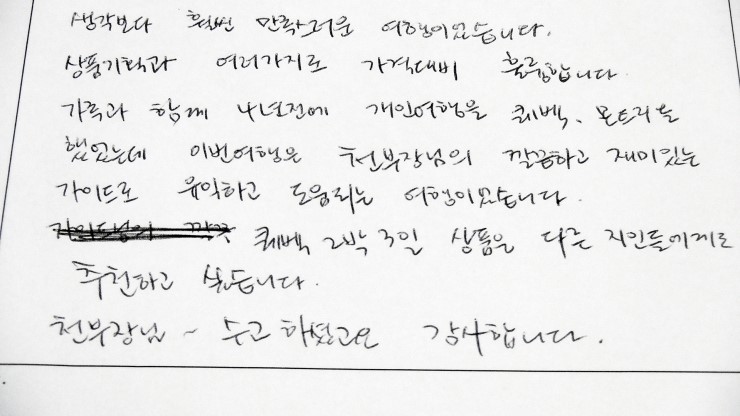 생각보다 훨씬 만족스러운 여행이었습니다.
상품기획과 여러가지로 가격대비 훌륭합니다
가족과 함께 4년전에 개인여행을 퀘벡, 몬트리올
했었는데 이번여행은 천부장님의 깔끔하고 재미있는
가이드로 유익하고 도움되는 여행이었습니다.
퀘벡 2박 3일 상품은 다른 지인들에게도
추천하고 싶습니다.
천부장님 ~ 수고 하셨고요 감사합니다.